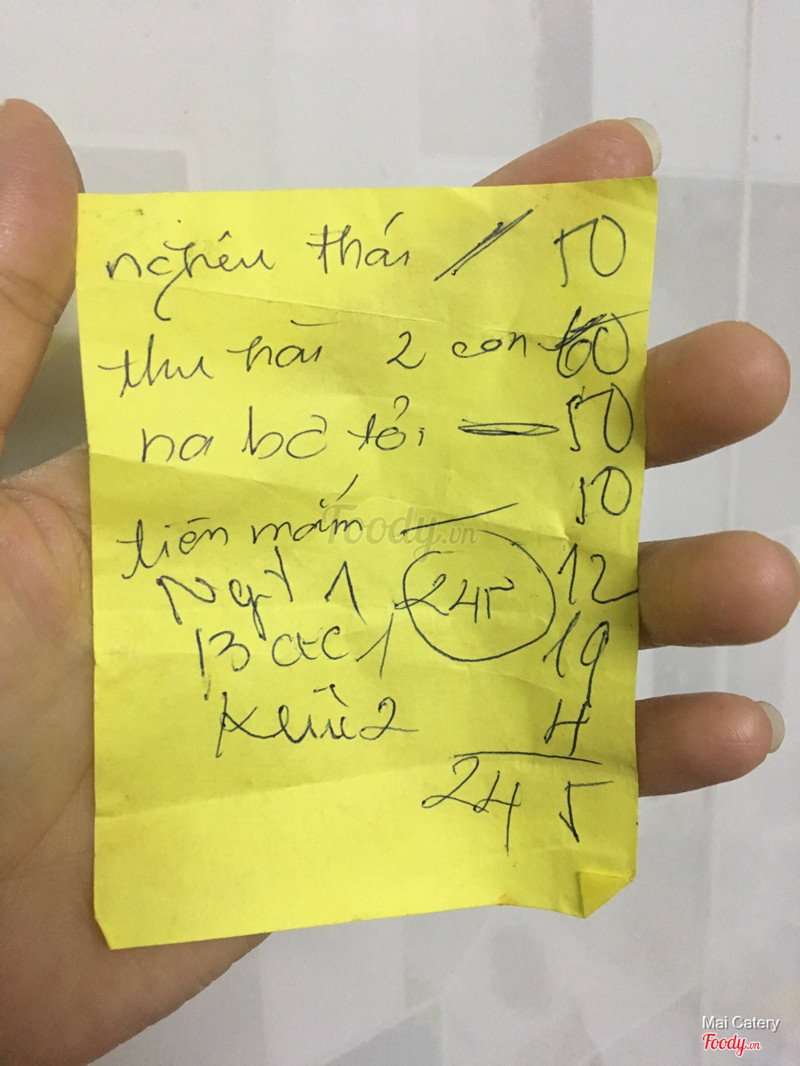 nghêu thái / 50
thu hài 2 con 60
na bơ tỏi — 50
tiên mắm — 50
Ngt 1 245 12
B 1 19
Khăn 2 4
245
Foody.vn
Mai Catery
Foody.vn